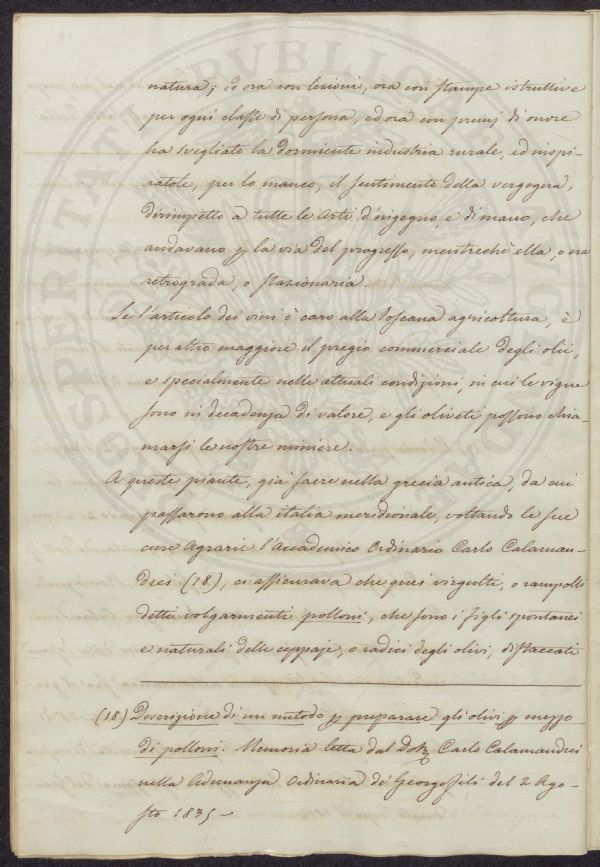 natura; ed ora con lezioni, ora con stampe istruttive
per ogni classe di persona, ed ora con premj di onore
ha svegliato la dormiente industria rurale, ed inspi-
ratole, per lo manco, il sentimento della vergogna,
dirimpetto a tutte le Arti d'ingegno, e di mano, che
andavano p la via del progresso, mentrechè ella, o era
retrograda, o stazionaria.
Se l'articolo dei vini è caro alla Toscana agricoltura, è
per altro maggiore il pregio commerciale degli olii,
e specialmente nelle attuali condizioni, in cui le vigne
sono in decadenza di valore, e gli oliveti possono chia-
marsi le nostre miniere.
A queste piante, già sacre nella grecia antica, da cui
passarono alla italia meridionale, voltando le sue
cure Agrarie l'Accademico Ordinario Carlo Calaman-
drei (18), ci assicurava che quei virgulti, o rampolli
detti volgarmenti polloni, che sono i figli spontanei
e naturali delle ceppaje, o radici degli olivi, distaccati
(18) Descrizione di un metodo p preparare gli olivi p mezzo
di polloni. Memoria letta dal Dott. Carlo Calamandrei
nella Adunanza Ordinaria de' Georgofili del 2 Ago-
sto 1835 -
PROSPERITATI REIPUBLICAE